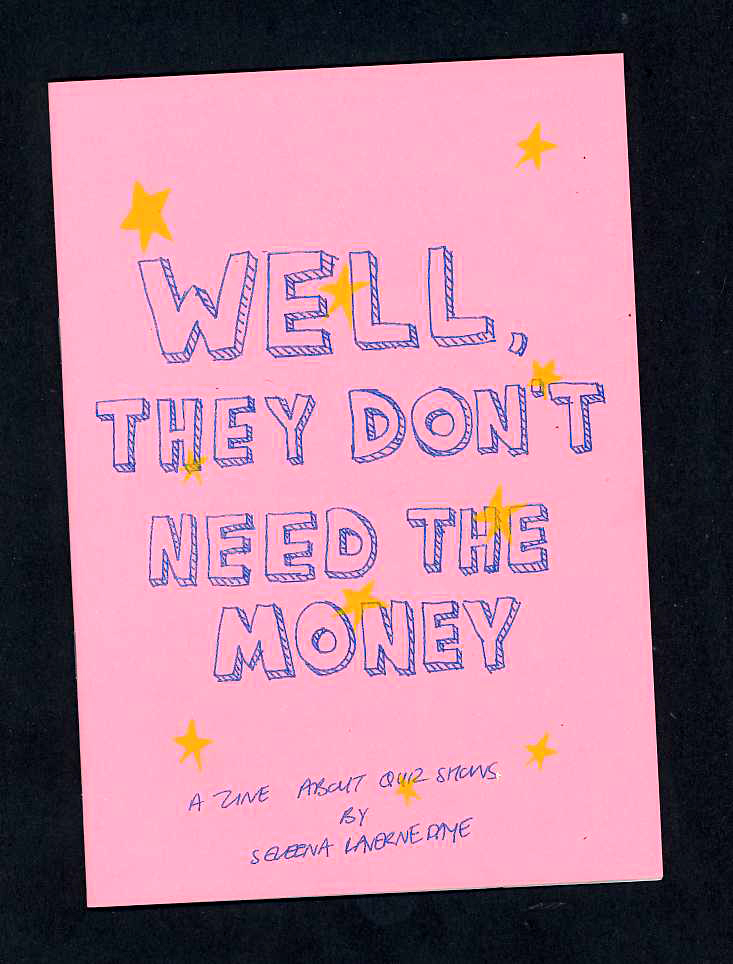 WELL,
THEY DON'T
NEED THE
MONEY
A ZINE ABOUT QUIZ SHOWS
BY
SELEENA LAVERNE DAYE